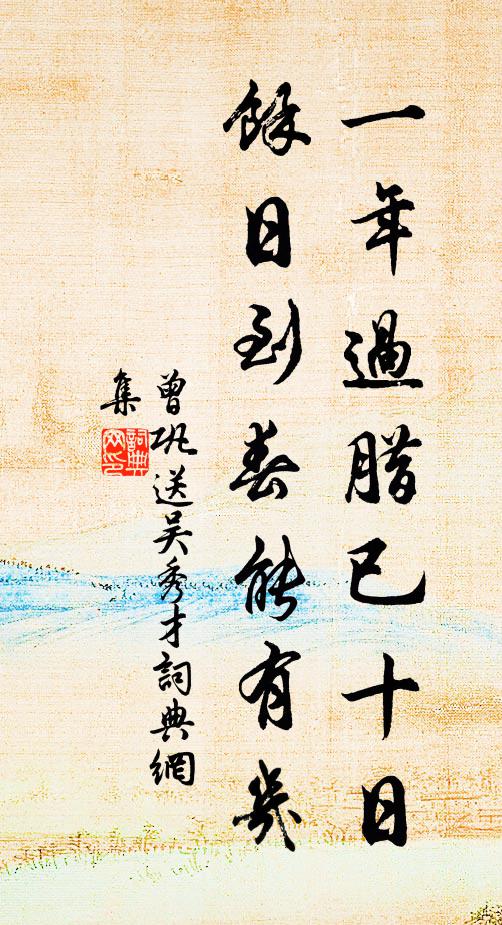 一年過腊已十日
餘日到春能有幾
曾巩送吴秀才詞典網
集
詞典网印